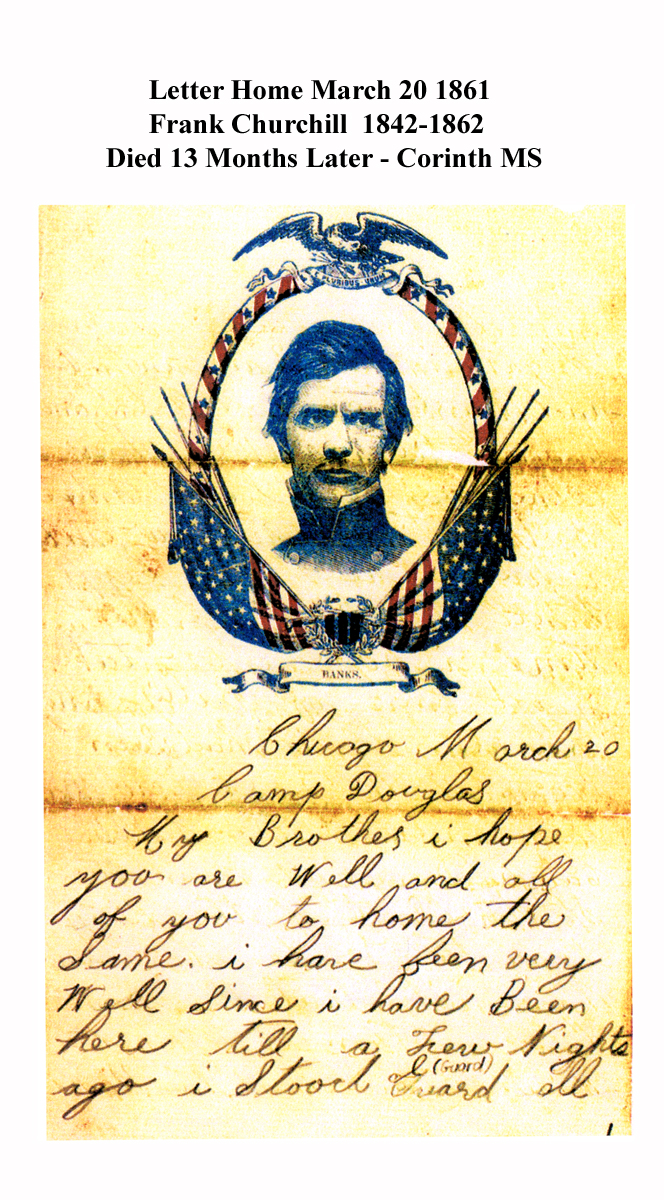 Letter Home March 20 1861
Frank Churchill 1842-1862
Died 13 Months Later - Corinth MS
PLURIBUS UNUM
BANKS.
Chicago March 20
Camp Douglas
My Brother i hope
you are Well and all
of you to home the
Same. i have been very
Well Since i have Been
here till a Few Nights
ago i Stood G (Guard) Guard all
1